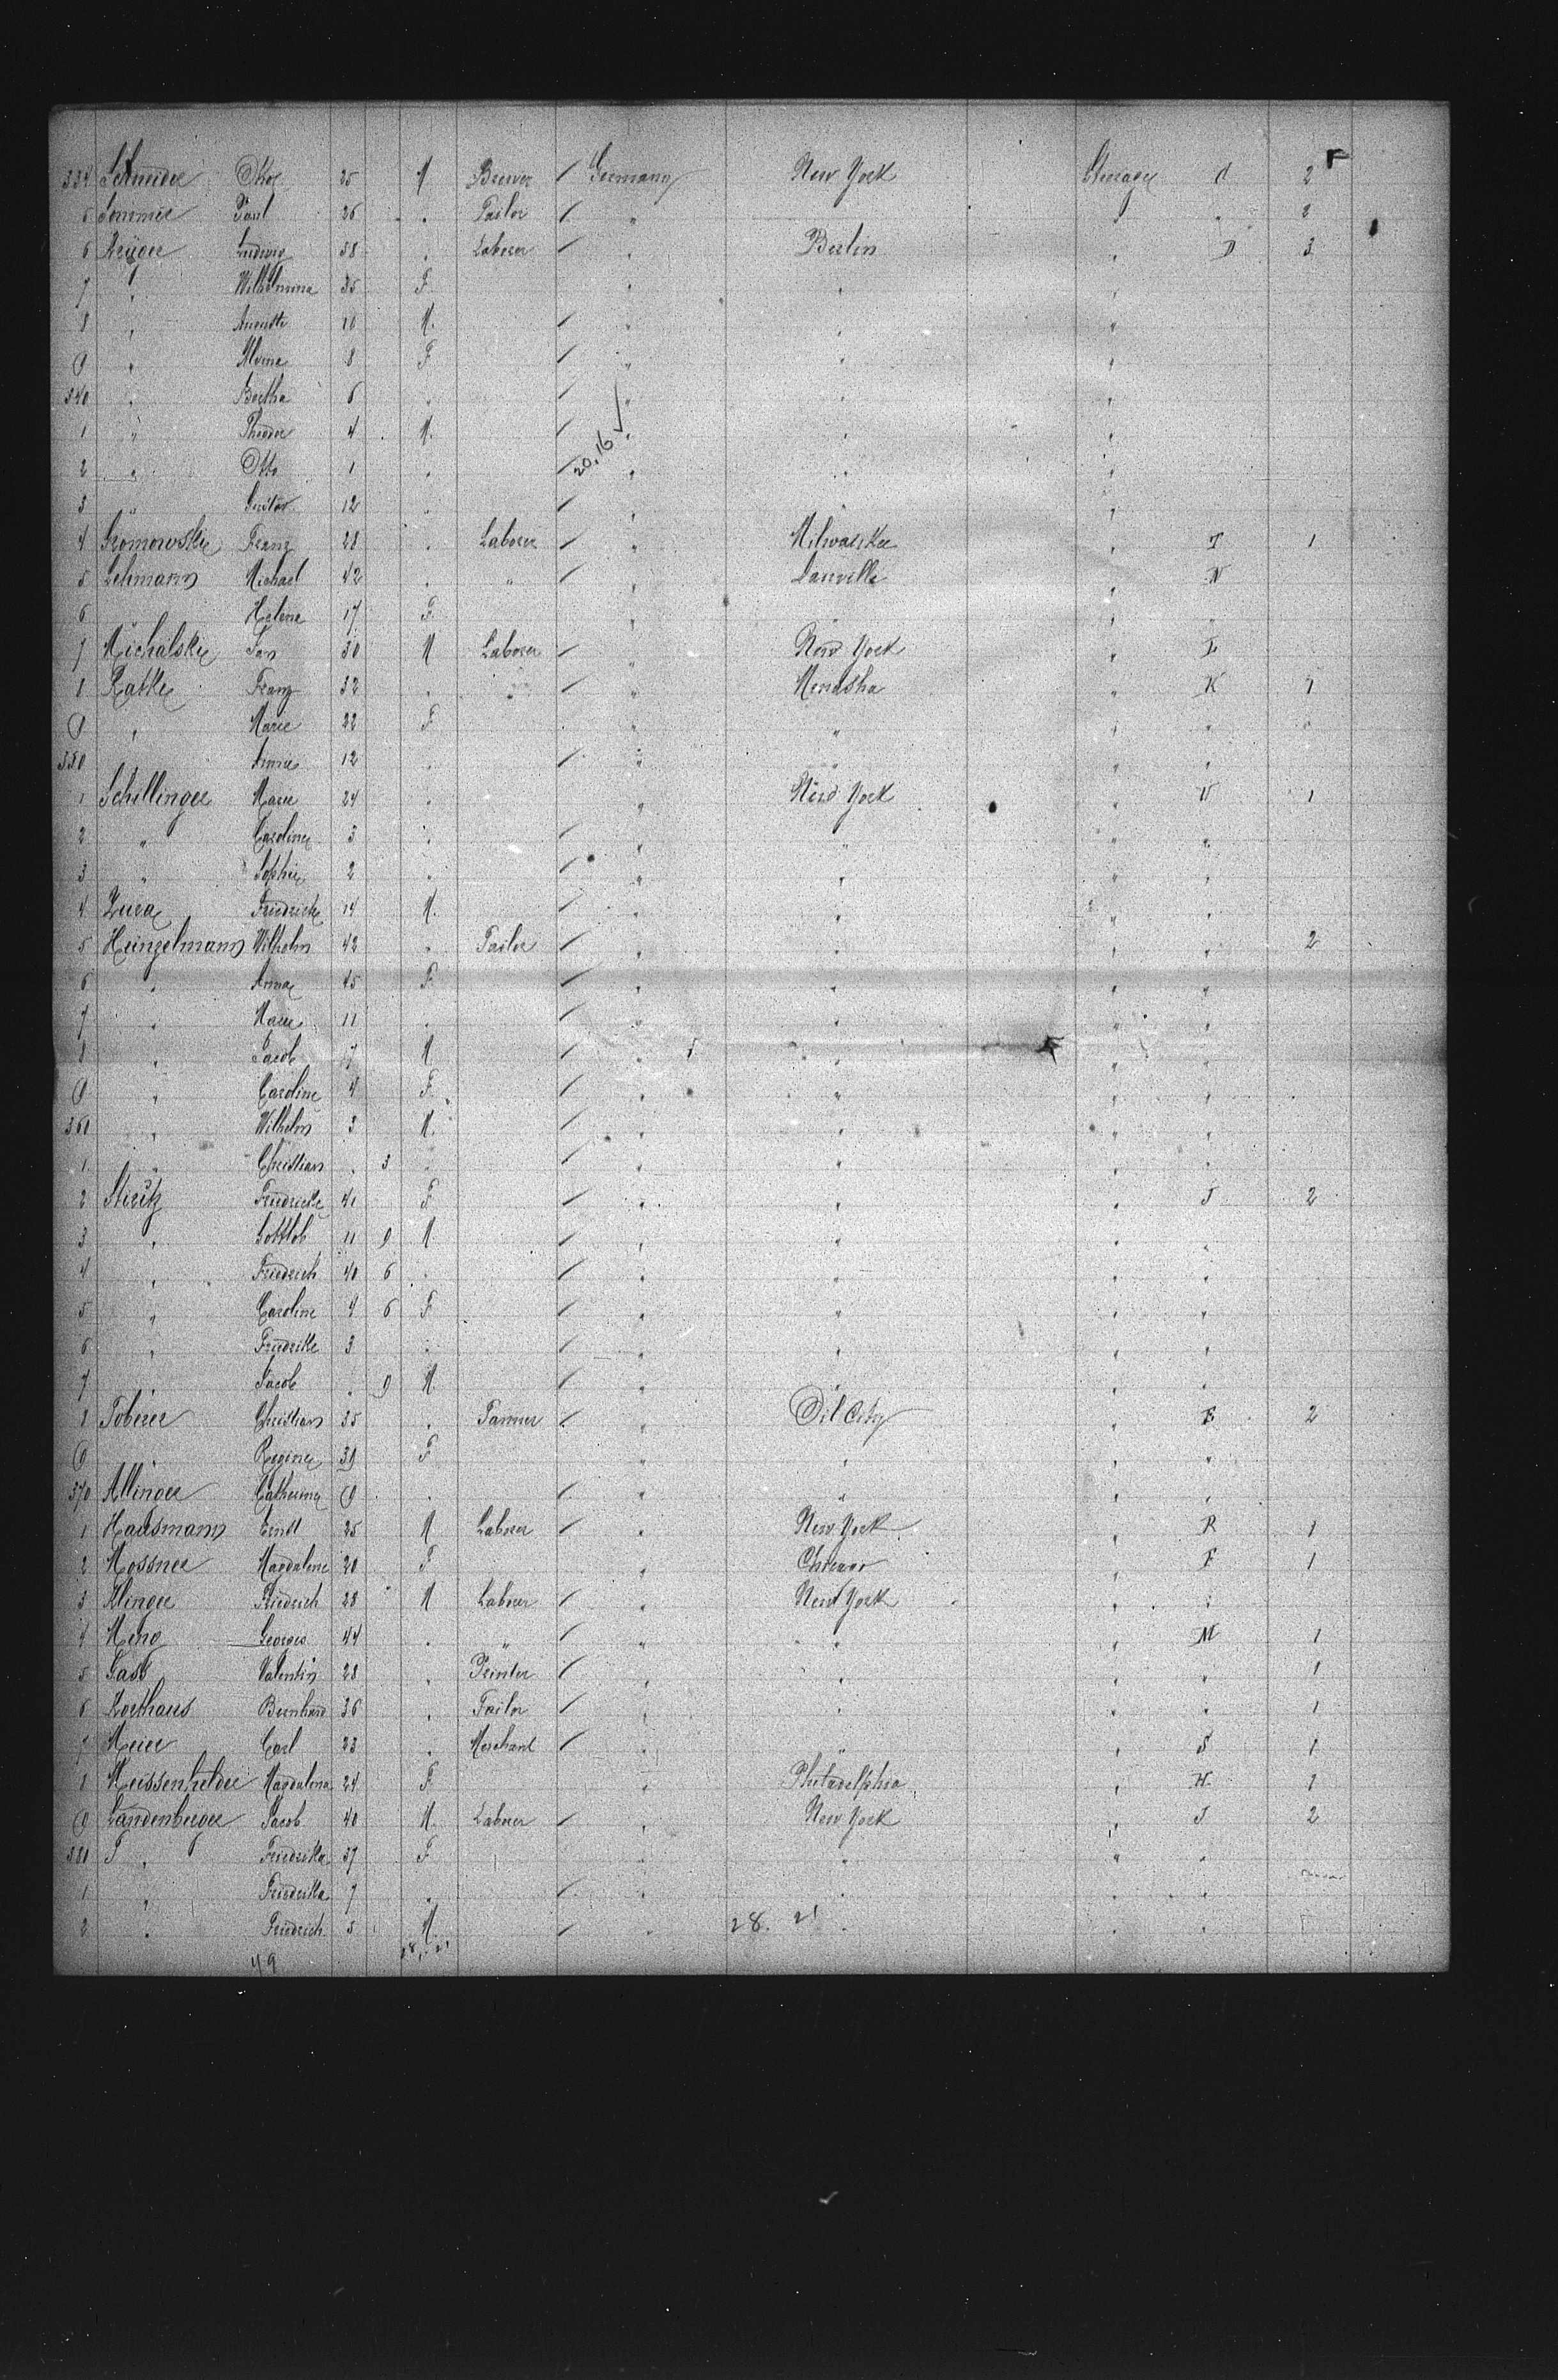 334 Schneider Otto 25 M Brewer / Germany New York Steerage A 2
5 Sommer Paul 26 " Tailor / " " " 2
6 Krüger Ludwig 38 " Laborer / " Berlin " D 3
7 " Wilhelmina 35 F " " "
8 " Auguste 10 M. / " " "
9 " Alvine 8 F / " " "
340 " Bertha 6 " / " " "
1 " Theodor 4 M. / " " "
2 " Otto 1 " / 20,16 ✓ " " "
3 " Gustav 12 " / " "
4 Franz 28 " Laborer / " Milwaukee " T 1
5 Lehmann Michael 42 " " / " Lanville " N
6 Helene 17 F " " " "
7 Michalske Jan 30 M Laborer / " New York "
8 Ratke Franz 32 " " / " Menasha " K 1
9 " Marie 22 F " " " "
350 Annie 12 " / " " " "
1 Schillinger Marie 24 " " New York " 1
2 " Caroline 3 " / " " " "
3 " Sophie 2 " / " " " "
4 Zura Friedricke 14 M. / " " " "
5 Heinzelmann Wilhelm 42 " Tailor / " " " " 2
6 " Anna 45 F / " " " "
7 " Marie 11 " / " " " "
8 " Jacob 7 M / " " " "
9 " Caroline 4 F / " " " "
360 " Wilhelm 3 M. / " " " "
1 " Christian " 3 " / " " " "
2 Friedricke 41 F / " " " J 2
3 " Gottlob 11 9 M / " " " "
4 " Friedrich 40 6 " / " " " "
5 " Caroline 4 6 F / " " " "
6 " Friedrike 3 " / " " " "
7 " Jacob " 9 M. / " " " "
8 Toberer Christian 35 " Tanner / " Oil City " 2
9 " Regine 39 F " " " "
370 Allinger Catherine 9 " / " " " "
1 Hausmann Ernst 25 M Laborer / " New York " R 1
2 Mossner Magdalene 20 F " Chicago " F 1
3 Klinger Friedrich 28 M Laborer / " New York " "
4 Meng Georges 44 " " / " " " M 1
5 Gass Valentin 28 " Printer / " " " " 1
6 Korthaus Bernhard 36 " Tailor / " " " " 1
7 Meier Carl 23 " Merchant / " " " S 1
8 Meissenhelder Magdalena 24 F " Philadelphia " H 1
9 Landenberger Jacob 40 M. Laborer / " New York " J 2
380 " Friedrika 37 F " " " "
1 " Friederika 7 " / " " " "
2 " Friedrich 5 M / " 28. 21 " " "
49 28, 21